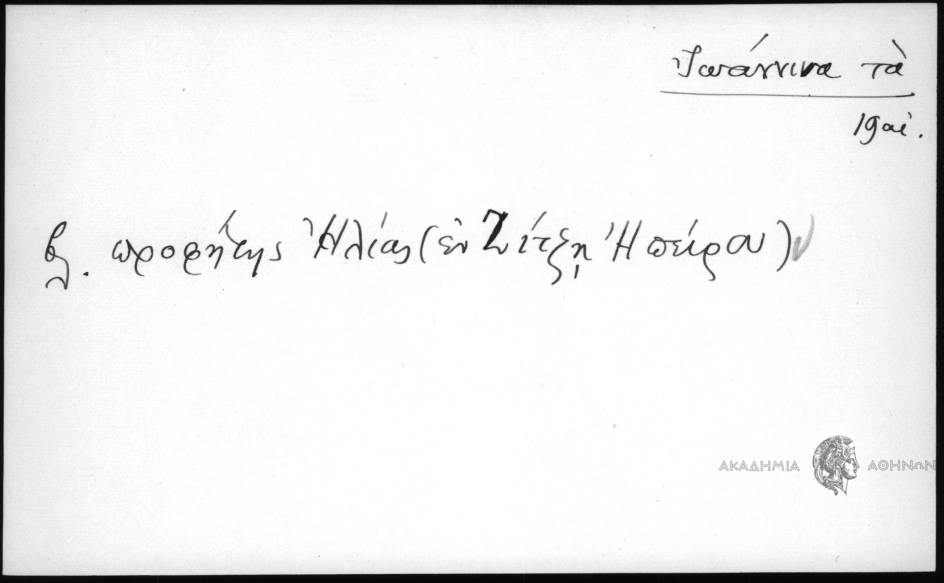 Ἰωάννινα τὰ
19 αἰ.
βλ. προφήτης Ἠλίας (ἐν Ζίτζῃ Ἠπείρου)
ΑΚΑΔΗΜΙΑ ΑΘΗΝΩΝ